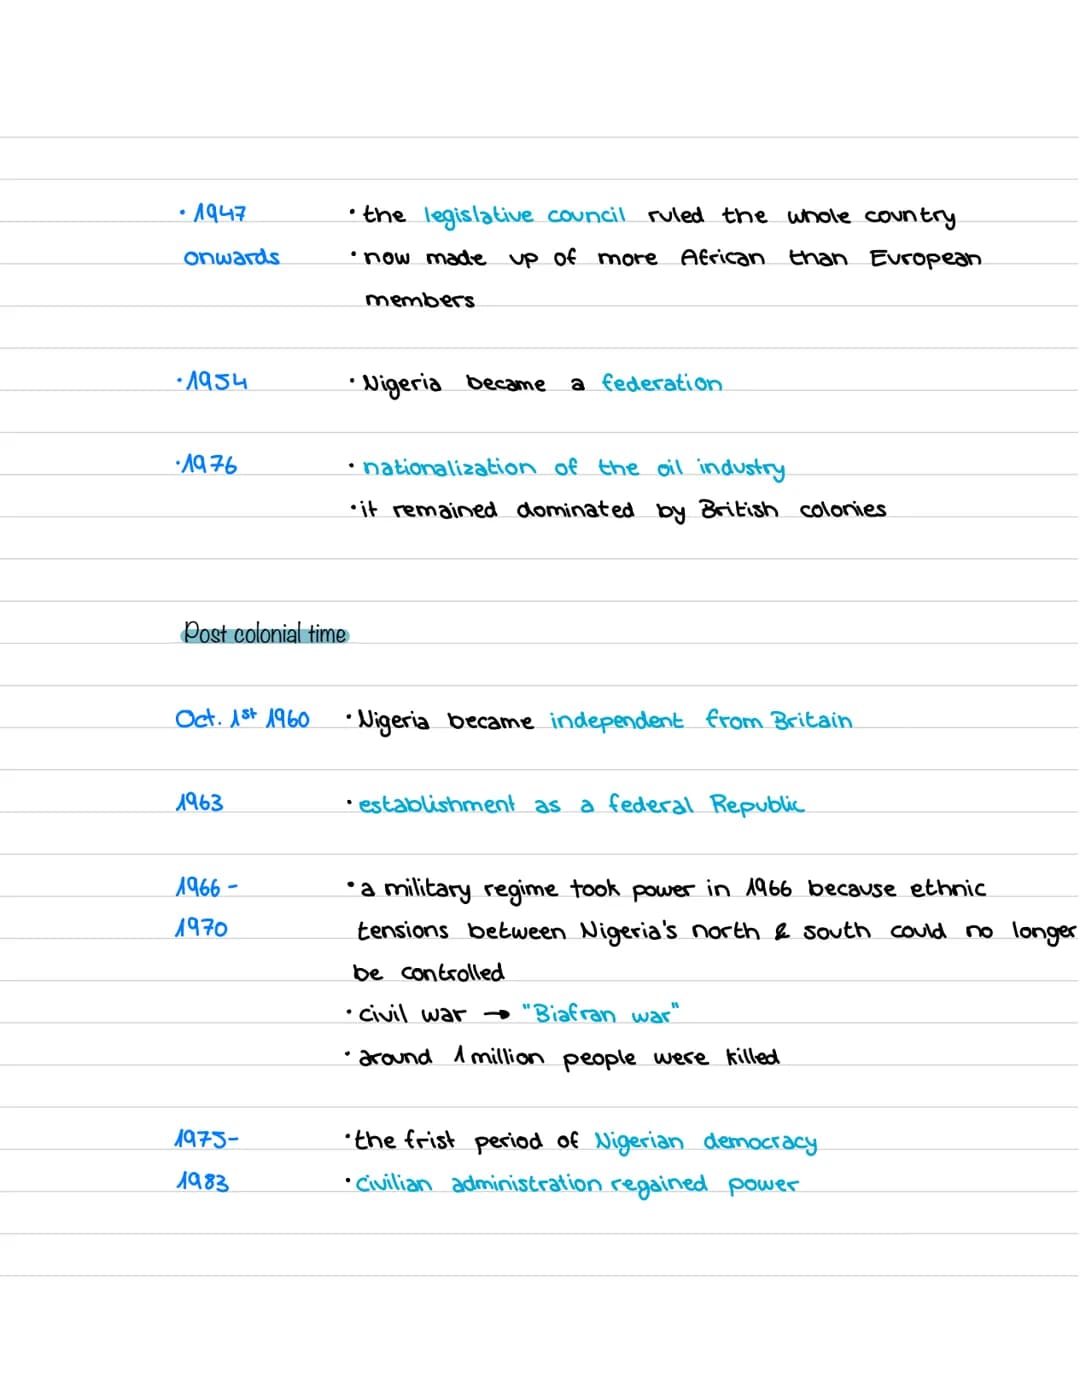 · 1947 · the legislative council ruled the whole country
onwards · now made up of more African than European
members
· 1954 · Nigeria became a federation
· 1976 · nationalization of the oil industry
· it remained dominated by British colonies
Post colonial time
Oct. 1st 1960 · Nigeria became independent from Britain
1963 · establishment as a federal Republic
1966 - · a military regime took power in 1966 because ethnic
1970 tensions between Nigeria's north & south could no longer
be controlled
· civil war → "Biafran war"
· around 1 million people were killed
1975- · the frist period of Nigerian democracy
1983 · civilian administration regained power